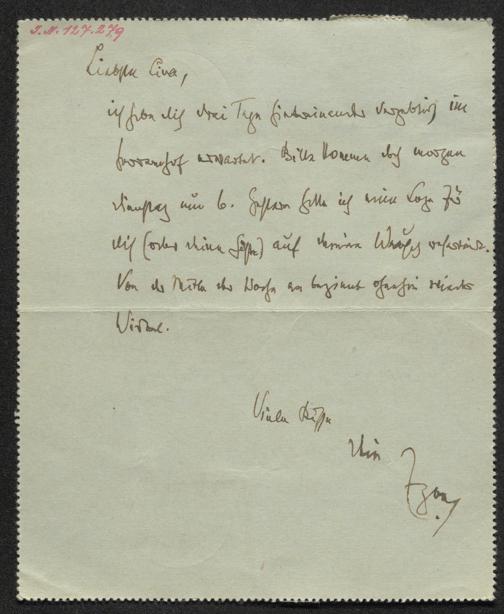 I.N. 127.279
Liebste Eva,
ich habe dich drei Tage hintereinander vergeblich im
erwartet. Bitte komme doch morgen
Dienstag um 6. Gestern hatte ich eine Loge für
dich (oder deine Gäste) auf deinen Wunsch reserviert.
Von der Mitte der Woche an beginnt ohnehin wieder
Wirbel.
Viele Küsse
Dein
Egon